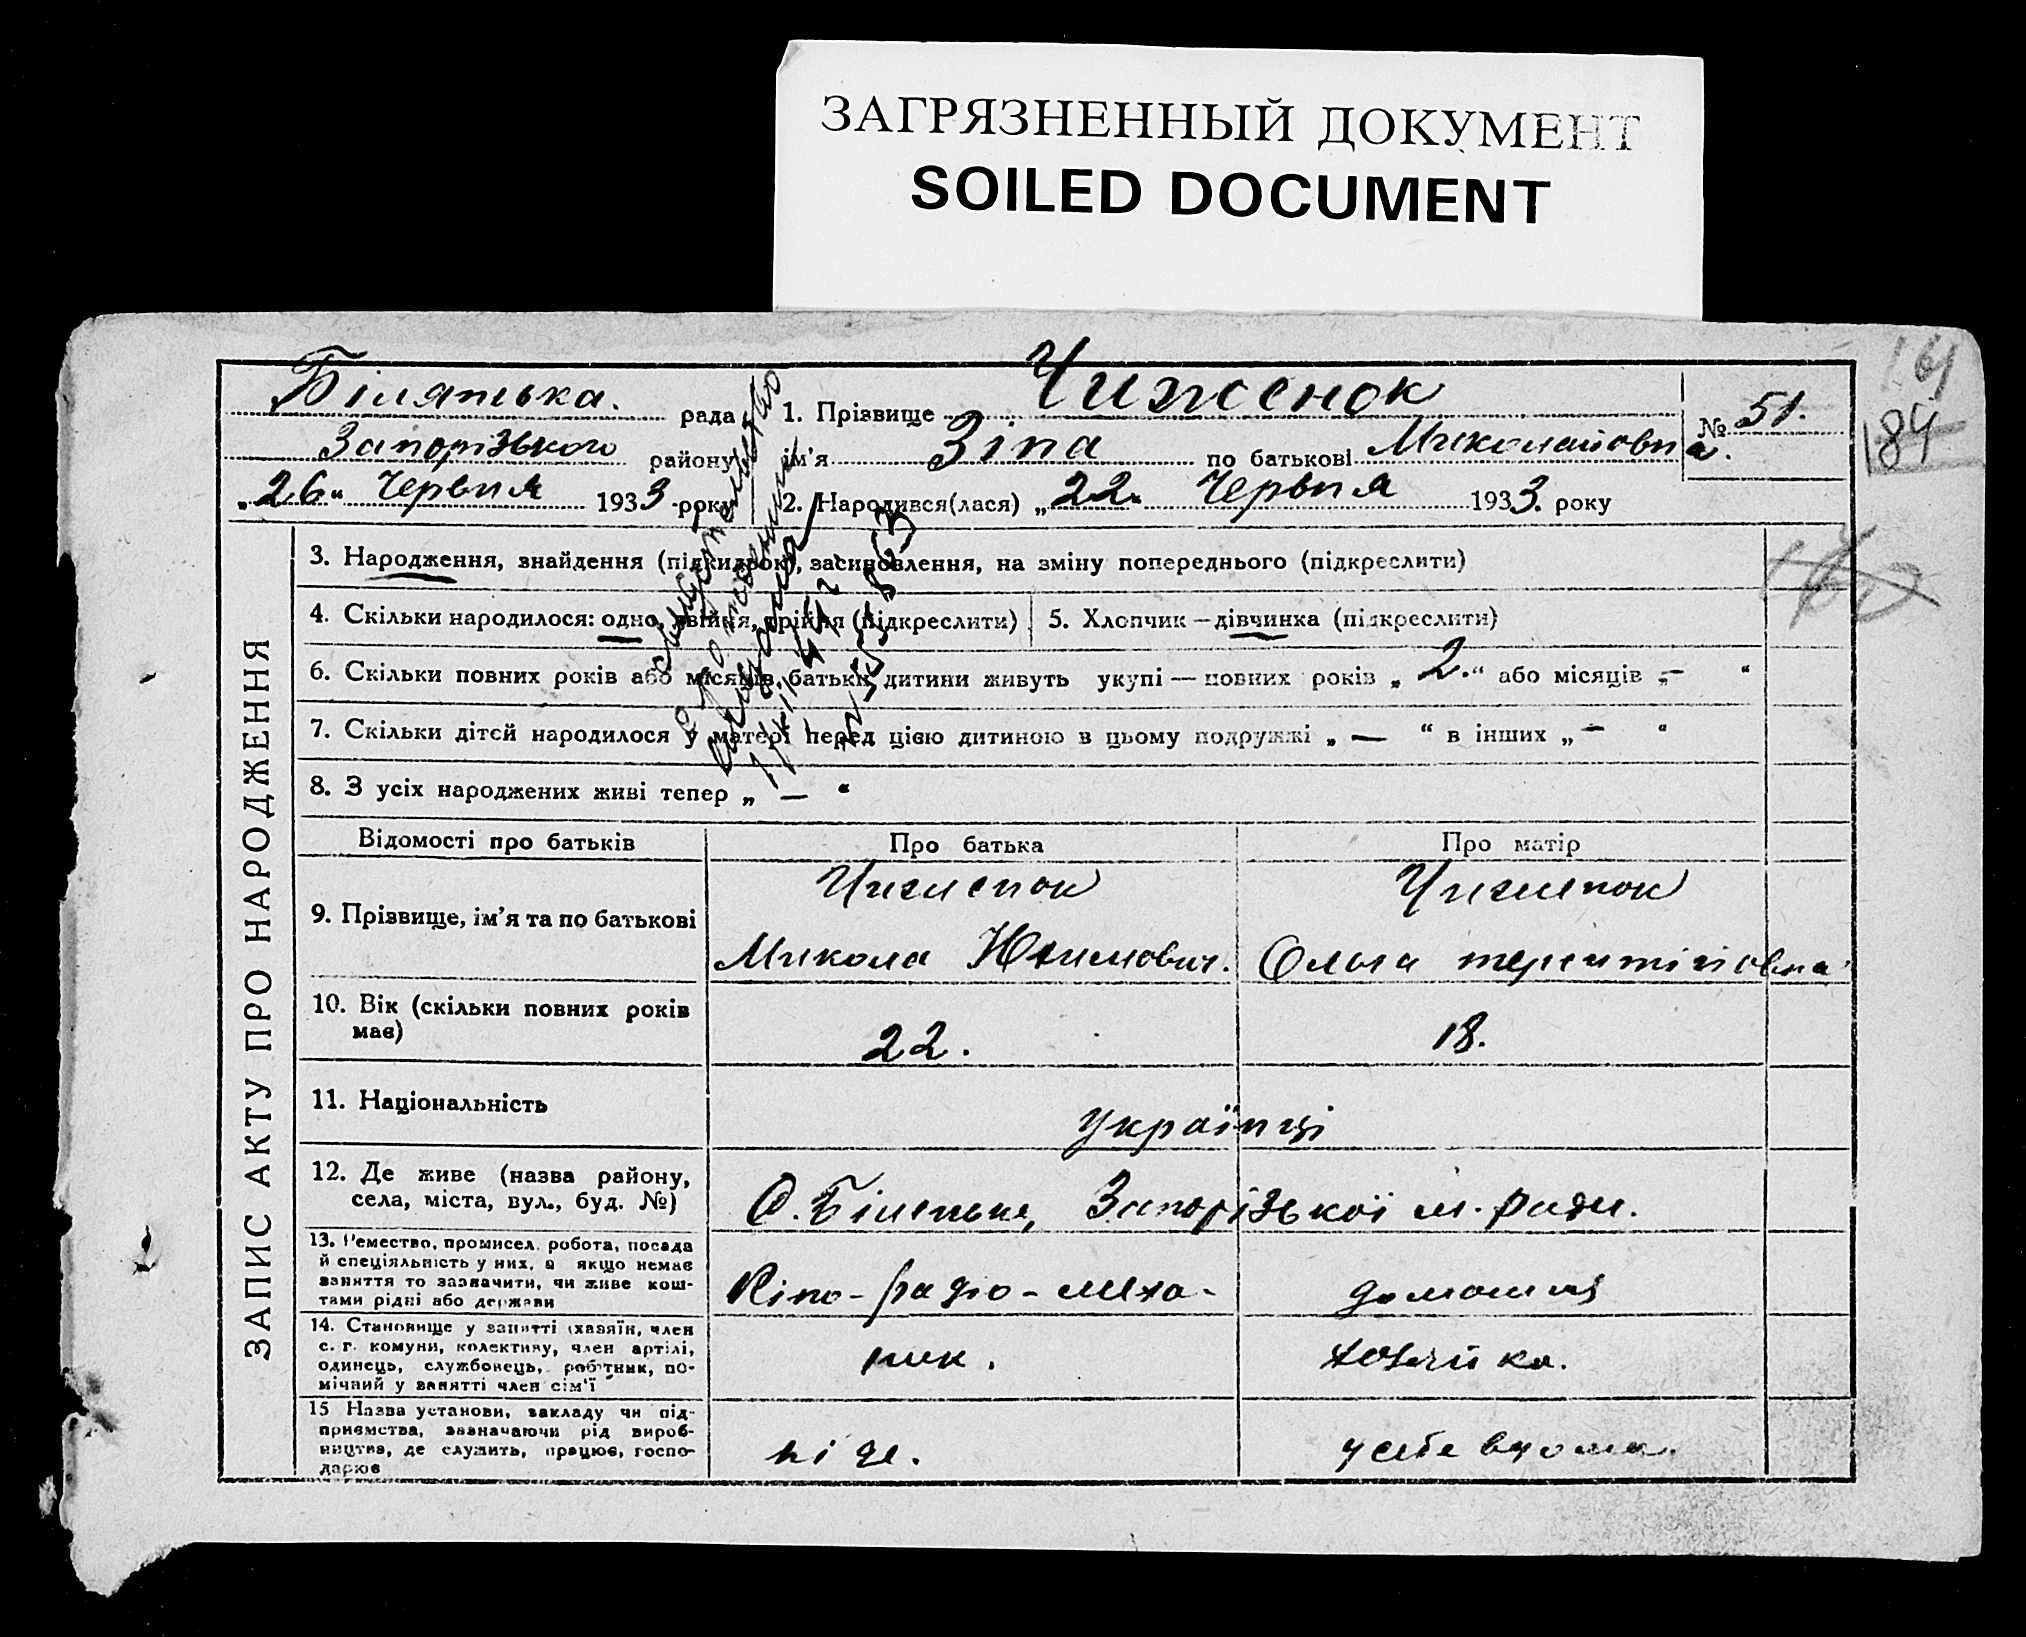 ЗАГРЯЗНЕННЫЙ ДОКУМЕНТ
SOILED DOCUMENT
161
184
Біляпська. рада
Запорізького району
„26“ Червня 1933 року
1. Прізвище Чиженок
ім'я Зіна по батькові Миколаївна.
2. Народився(лася) „22“ Червня 1933. року
№ 51.
ЗАПИС АКТУ ПРО НАРОДЖЕННЯ
3. Народження, знайдення (підкидьок), засиновлення, на зміну попереднього (підкреслити)
4. Скільки народилося: одно, двійня, трійня (підкреслити)
5. Хлопчик — дівчинка (підкреслити)
6. Скільки повних років або місяців батьки дитини живуть укупі — повних років „2.“ або місяців „—“
7. Скільки дітей народилося у матері перед цією дитиною в цьому подружжі „—“ в інших „—“
8. З усіх народжених живі тепер „—“
Відомості про батьків
Про батька
Про матір
9. Прізвище, ім'я та по батькові
Чиженок
Микола Юхимович.
Чиженок
Ольга
10. Вік (скільки повних років
має)
22.
18.
11. Національність
українці
12. Де живе (назва району,
села, міста, вул., буд. №)
С. Біленьке, Запорізької м. ради.
13. Ремество, промисел, робота, посада
й спеціяльність у них, а якщо немає
заняття то зазначити, чи живе кош-
тами рідні або держави
Кіно-радіо-меха-
домашня
14. Становище у занятті (хазяїн, член
с. г. комуни, колективу, член артілі,
одинець, службовець, робітник, по-
мічний у занятті член сім'ї
ник.
хозяйка.
15 Назва установи, закладу чи під-
приємства, зазначаючи рід вироб-
ництва, де служить, працює, госпо-
дарює
ніде.
у себе вдома.